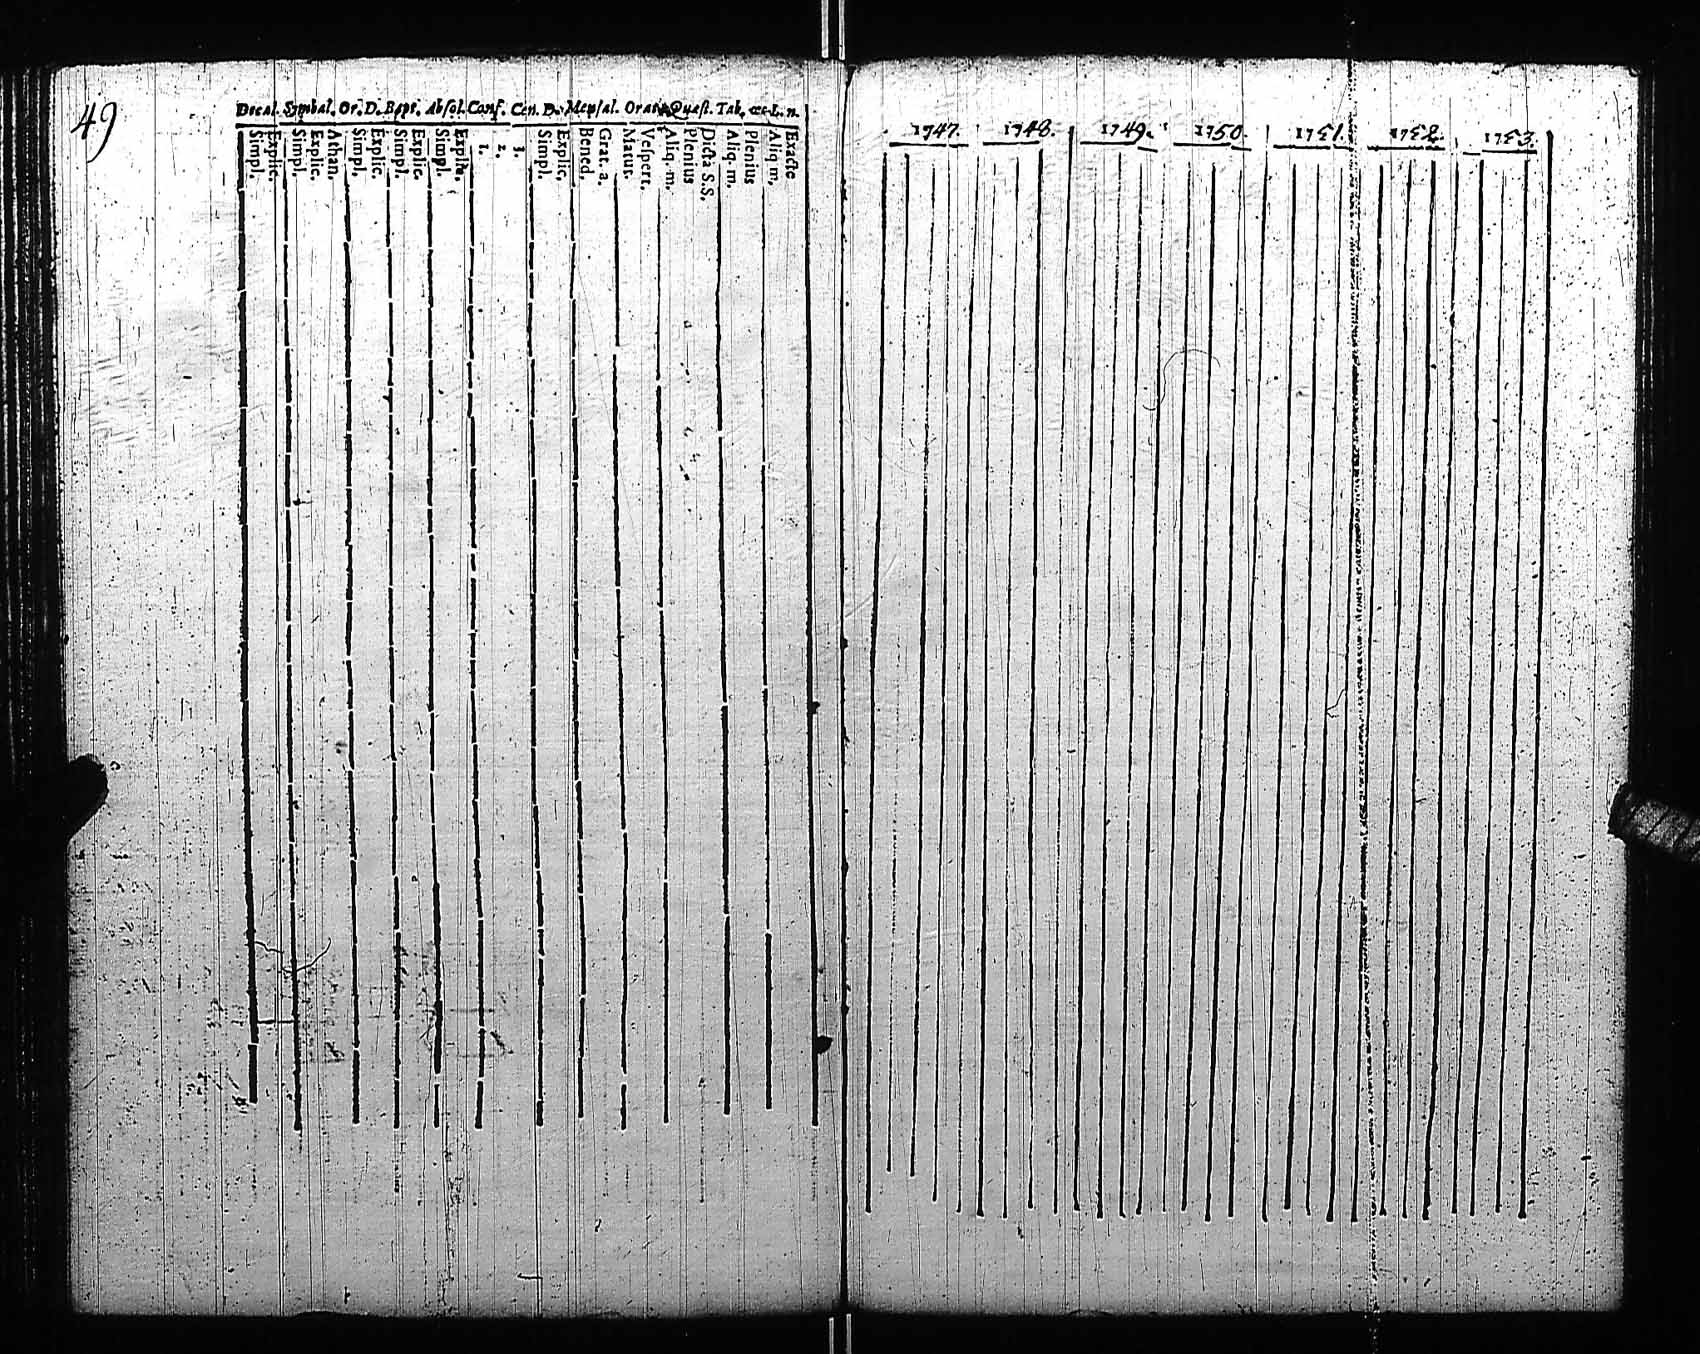 49
Decal. Symbol. Or. D. Bapt. Absol. Conf. Cen. D. Mensal. Orat. Quæst. Tab. œc. L. n.
Simpl. Explic. Simpl. Explic. Athan. Simpl. Explic. Simpl. Explic. Simpl. Explic. 1. 2. 3. Simpl. Explic. Bened. Grat. a. Matut. Vespert. Aliq. m. Plenius Dicta S.S. Aliq. m. Plenius Aliq m. Exacte
1747. 1748. 1749. 1750. 1751. 1752. 1753.